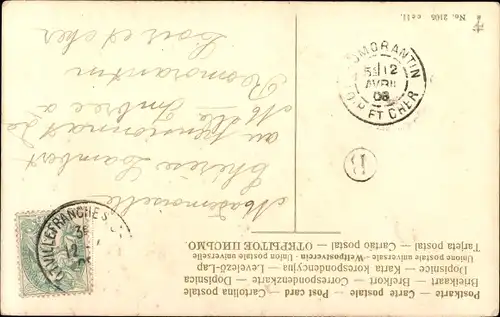 Postkarte — Carte postale — Post card — Cartolina postale
Briefkaart — Brefkort — Correspondenzkarte — Dopisnica
Dopisnice — Karta korespondencyjna — Levelező-Lap
Union postale universelle — Weltpostverein — Unione postale universale
Tarjeta postal — Cartão postal — ОТКРЫТОЕ ПИСЬМО
Mademoiselle
Thérèse Lambert
au pensionnat de
Melle
à
Romorantin
Loir et cher
VILLEFRANCHE S
3E
12
ROMORANTIN
5E 12
AVRIL
08
LOIR ET CHER
B
No. 2105 cell.